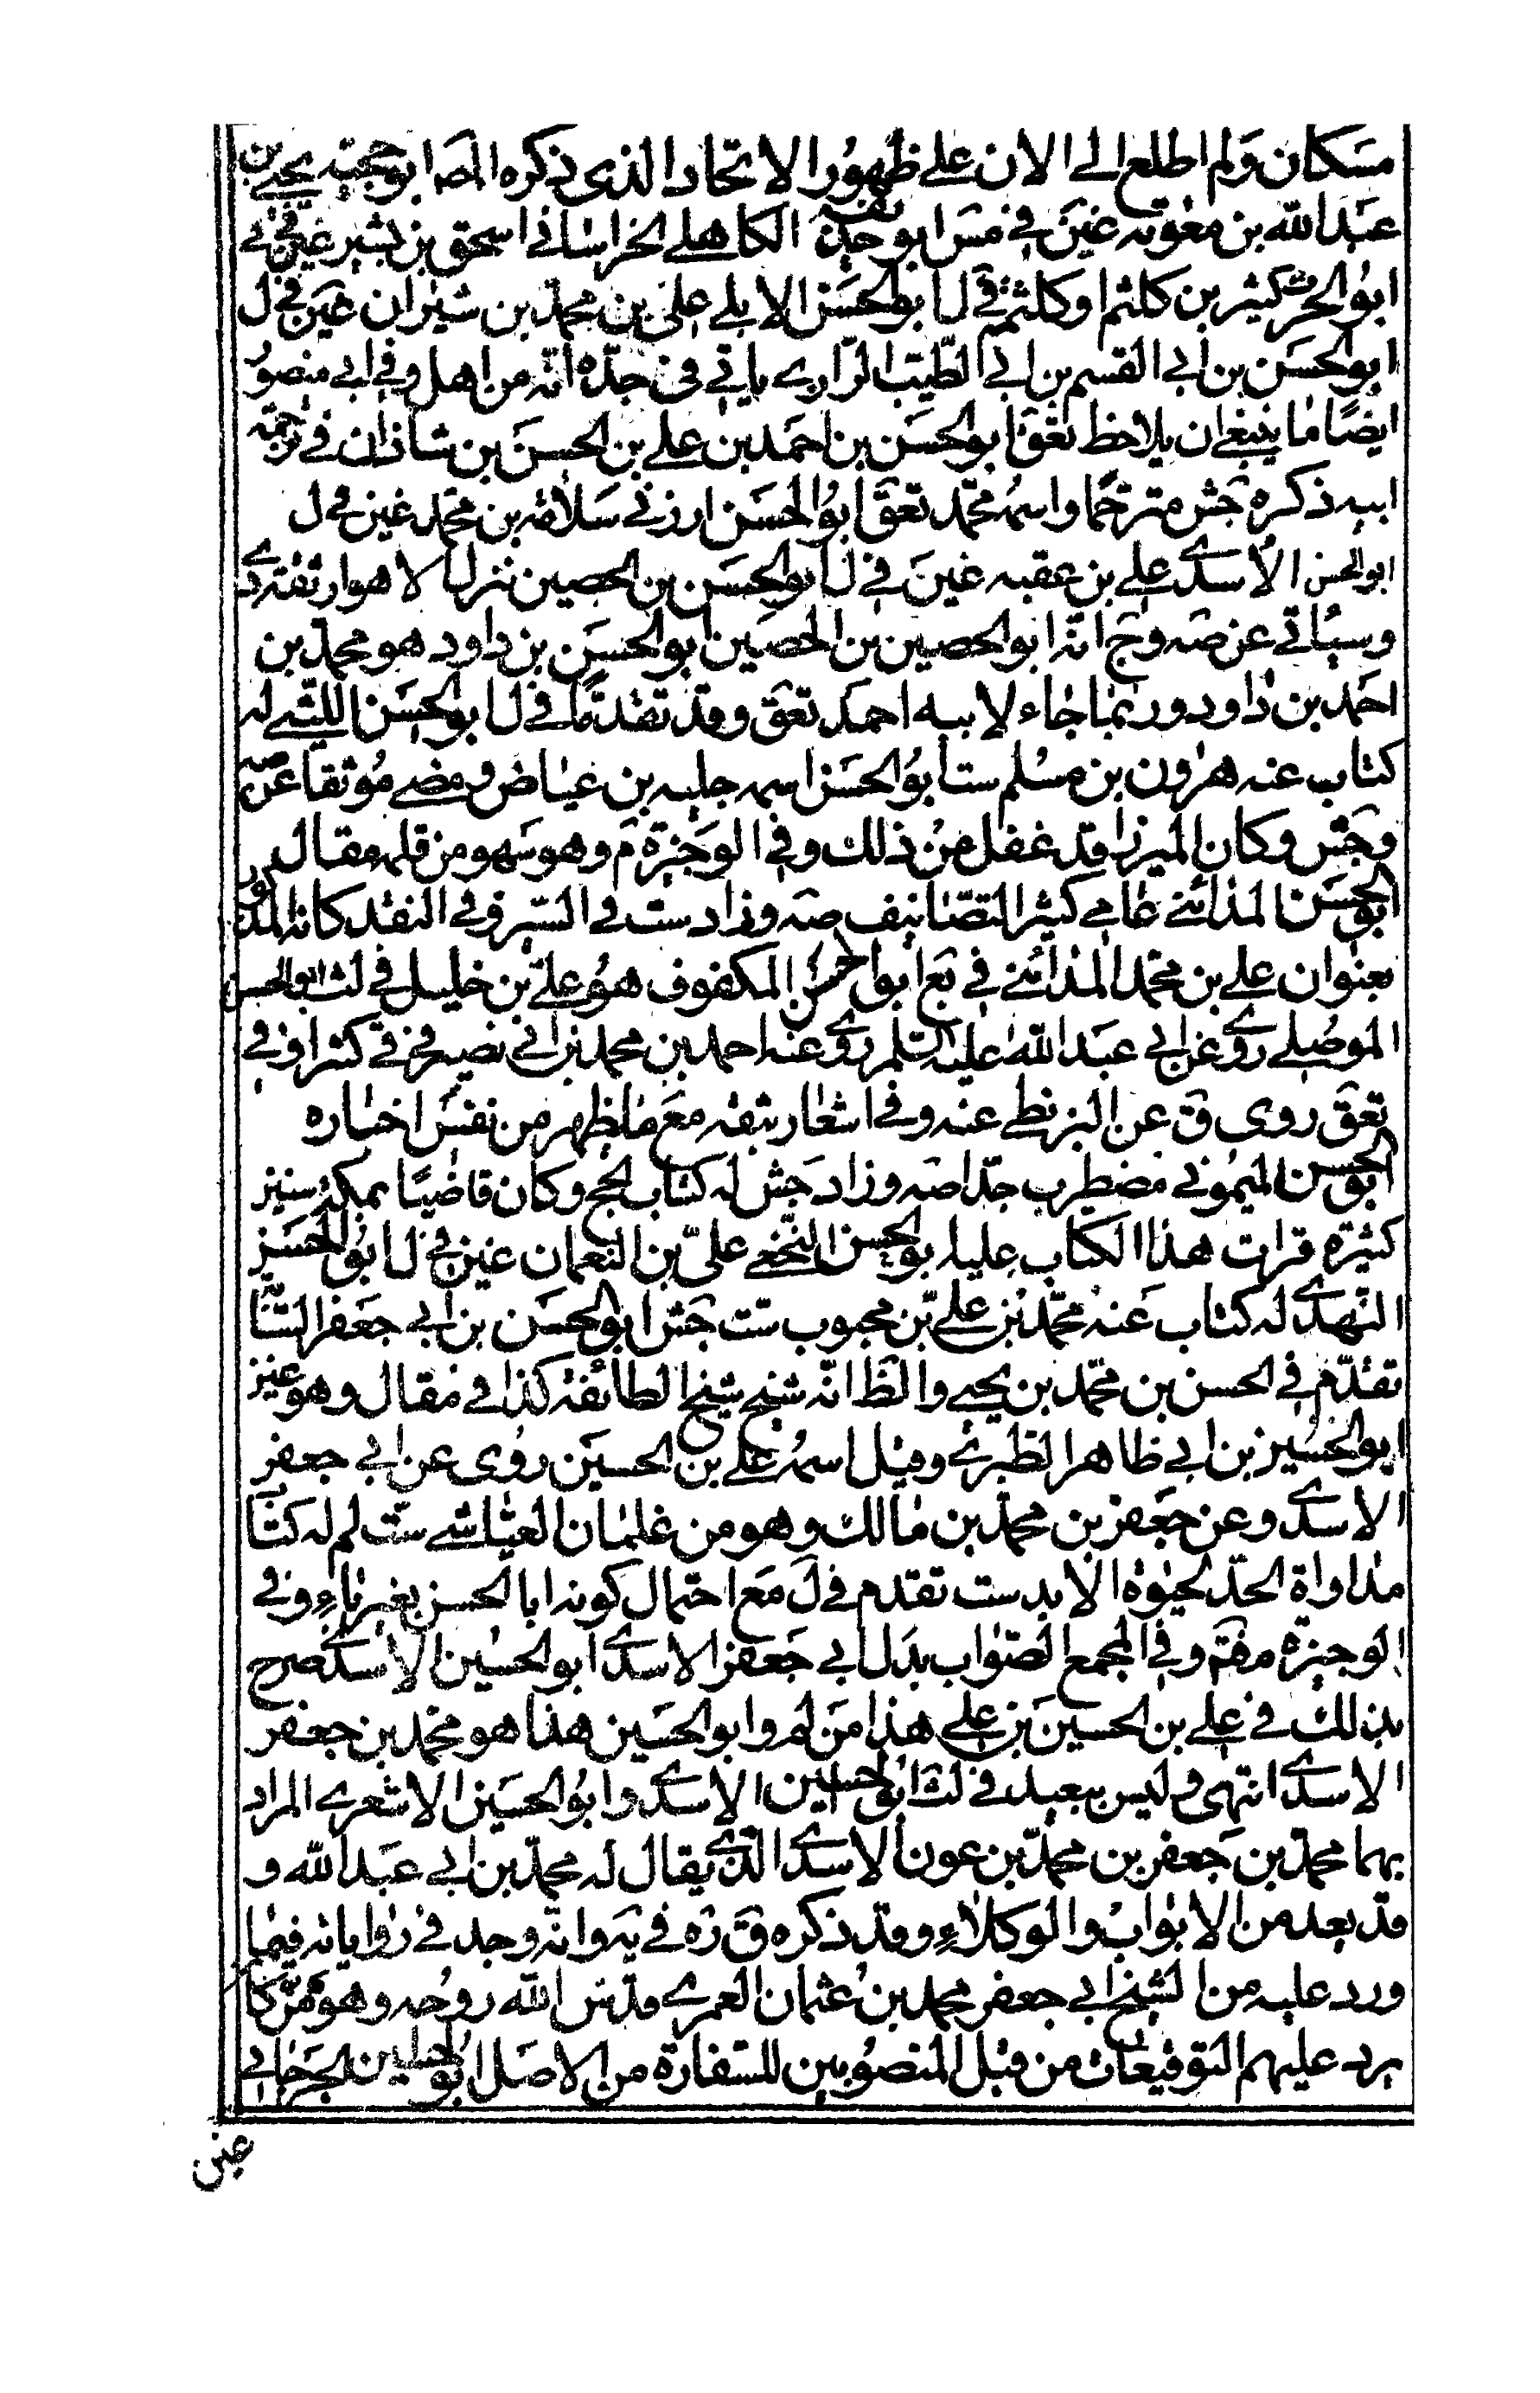 مسكان ولم اطلع الى الان على ظهور الاتحاد الذى ذكره المصـ ابو جميه يحيى بن
عبد الله بن معويه غين فى مس ابو حذيفه الكاهلى الخراسانى اسحق بن بشير غين فخ فى
ابو الحرث كثير بن كلثم او كلثمه فى ل ابو الحسن الابلى على بن محمد بن شيران غين فخ ل
ابو الحسن بن ابى القسم بن ابى الطيب الرازى ياتى فى جده انه من اهل وفى ابى منصور
ايضا ما ينبغى ان يلاحظ تعق ابو الحسن بن احمد بن على بن الحسن بن شاذان فى ترجمة
ابيه ذكره جش مترحما واسمه محمد تعق ابو الحسن ارزنى سلامه بن محمد غين فخ ل
ابو الحسن الاسدى على بن عقبه غين فى ل ابو الحسن بن الحصين نزل الاهواز ثقة دى
وسياتى عن صه وج انه ابو الحصين بن الحصين ابو الحسن بن داود هو محمد بن
احمد بن داود وربما جاء لابيه احمد تعق وقد تقدما فى ل ابو الحسن الليثى له
كتاب عنه هرون بن مسلم ست ابو الحسن اسمه جلبه بن عياض ومضى موثقا عن صه
وجش وكان الميرزا قد غفل من ذلك وفى الوجيزة م وهو سهو من قلمه مقال
ابو الحسن المدائنى عامى كثير التصانيف صه وزاد ست فى السير وفى النقد كانه المذكور
بعنوان على بن محمد المدائنى فى بع ابو الحسن المكفوف هو على بن خليل فى لث ابو الحسن
الموصلى روى عن ابى عبد الله عليه السلم روى عنه احمد بن محمد بن ابى نصر فخ فى كثيرا وفى
تعق روى ق عن البزنطى عنه وفى اشعار بثقه مع ما يظهر من نفس اخباره
ابو الحسن الميمونى مضطرب جدا صه وزاد جش له كتاب الحج وكان قاضيا بمكة سنين
كثيرة قرات هذا الكتاب عليه ابو الحسن النخعى على بن النعمان غين فخ ل ابو الحسن
النهدى له كتاب عنه محمد بن على بن محبوب ست جش ابو الحسن بن ابى جعفر النسابه
تقدم فى الحسن بن محمد بن يحيى والظ انه شيخ شيخ الطائفة كذا فى مقال وهو غين
ابو الحسين بن ابى طاهر الطبرى وقيل اسمه على بن الحسين روى عن ابى جعفر
الاسدى وعن جعفر بن محمد بن مالك وهو من غلمان العياشى ست لم له كتاب
مداواة الجسد لحيوة الابد ست تقدم فى ل مع احتمال كونه ابا الحسن بغير ياء وفى
الوجيزه مفقم وفى المجمع الصواب بدل ابى جعفر الاسدى ابو الحسين الاسدى صرح
بذلك فى على بن الحسين بن على هذا من لم وابو الحسين هذا هو محمد بن جعفر
الاسدى انتهى وليس ببعيد فى لث ابو الحسين الاسدى وابو الحسين الاشعرى المراد
بهما محمد بن جعفر بن محمد بن عون الاسدى الذى يقال له محمد بن ابى عبد الله و
قد يعد من الابواب والوكلاء وقد ذكره ق ره فى يه وانه وجد فى رواياته فيما
ورد عليه من الشيخ ابى جعفر محمد بن عثمان العمرى قدس الله روحه وهو ممن كان
يرد عليهم التوقيعات من قبل المنصوبين للسفارة من الاصل ابو الحسين الجرجانى
عين